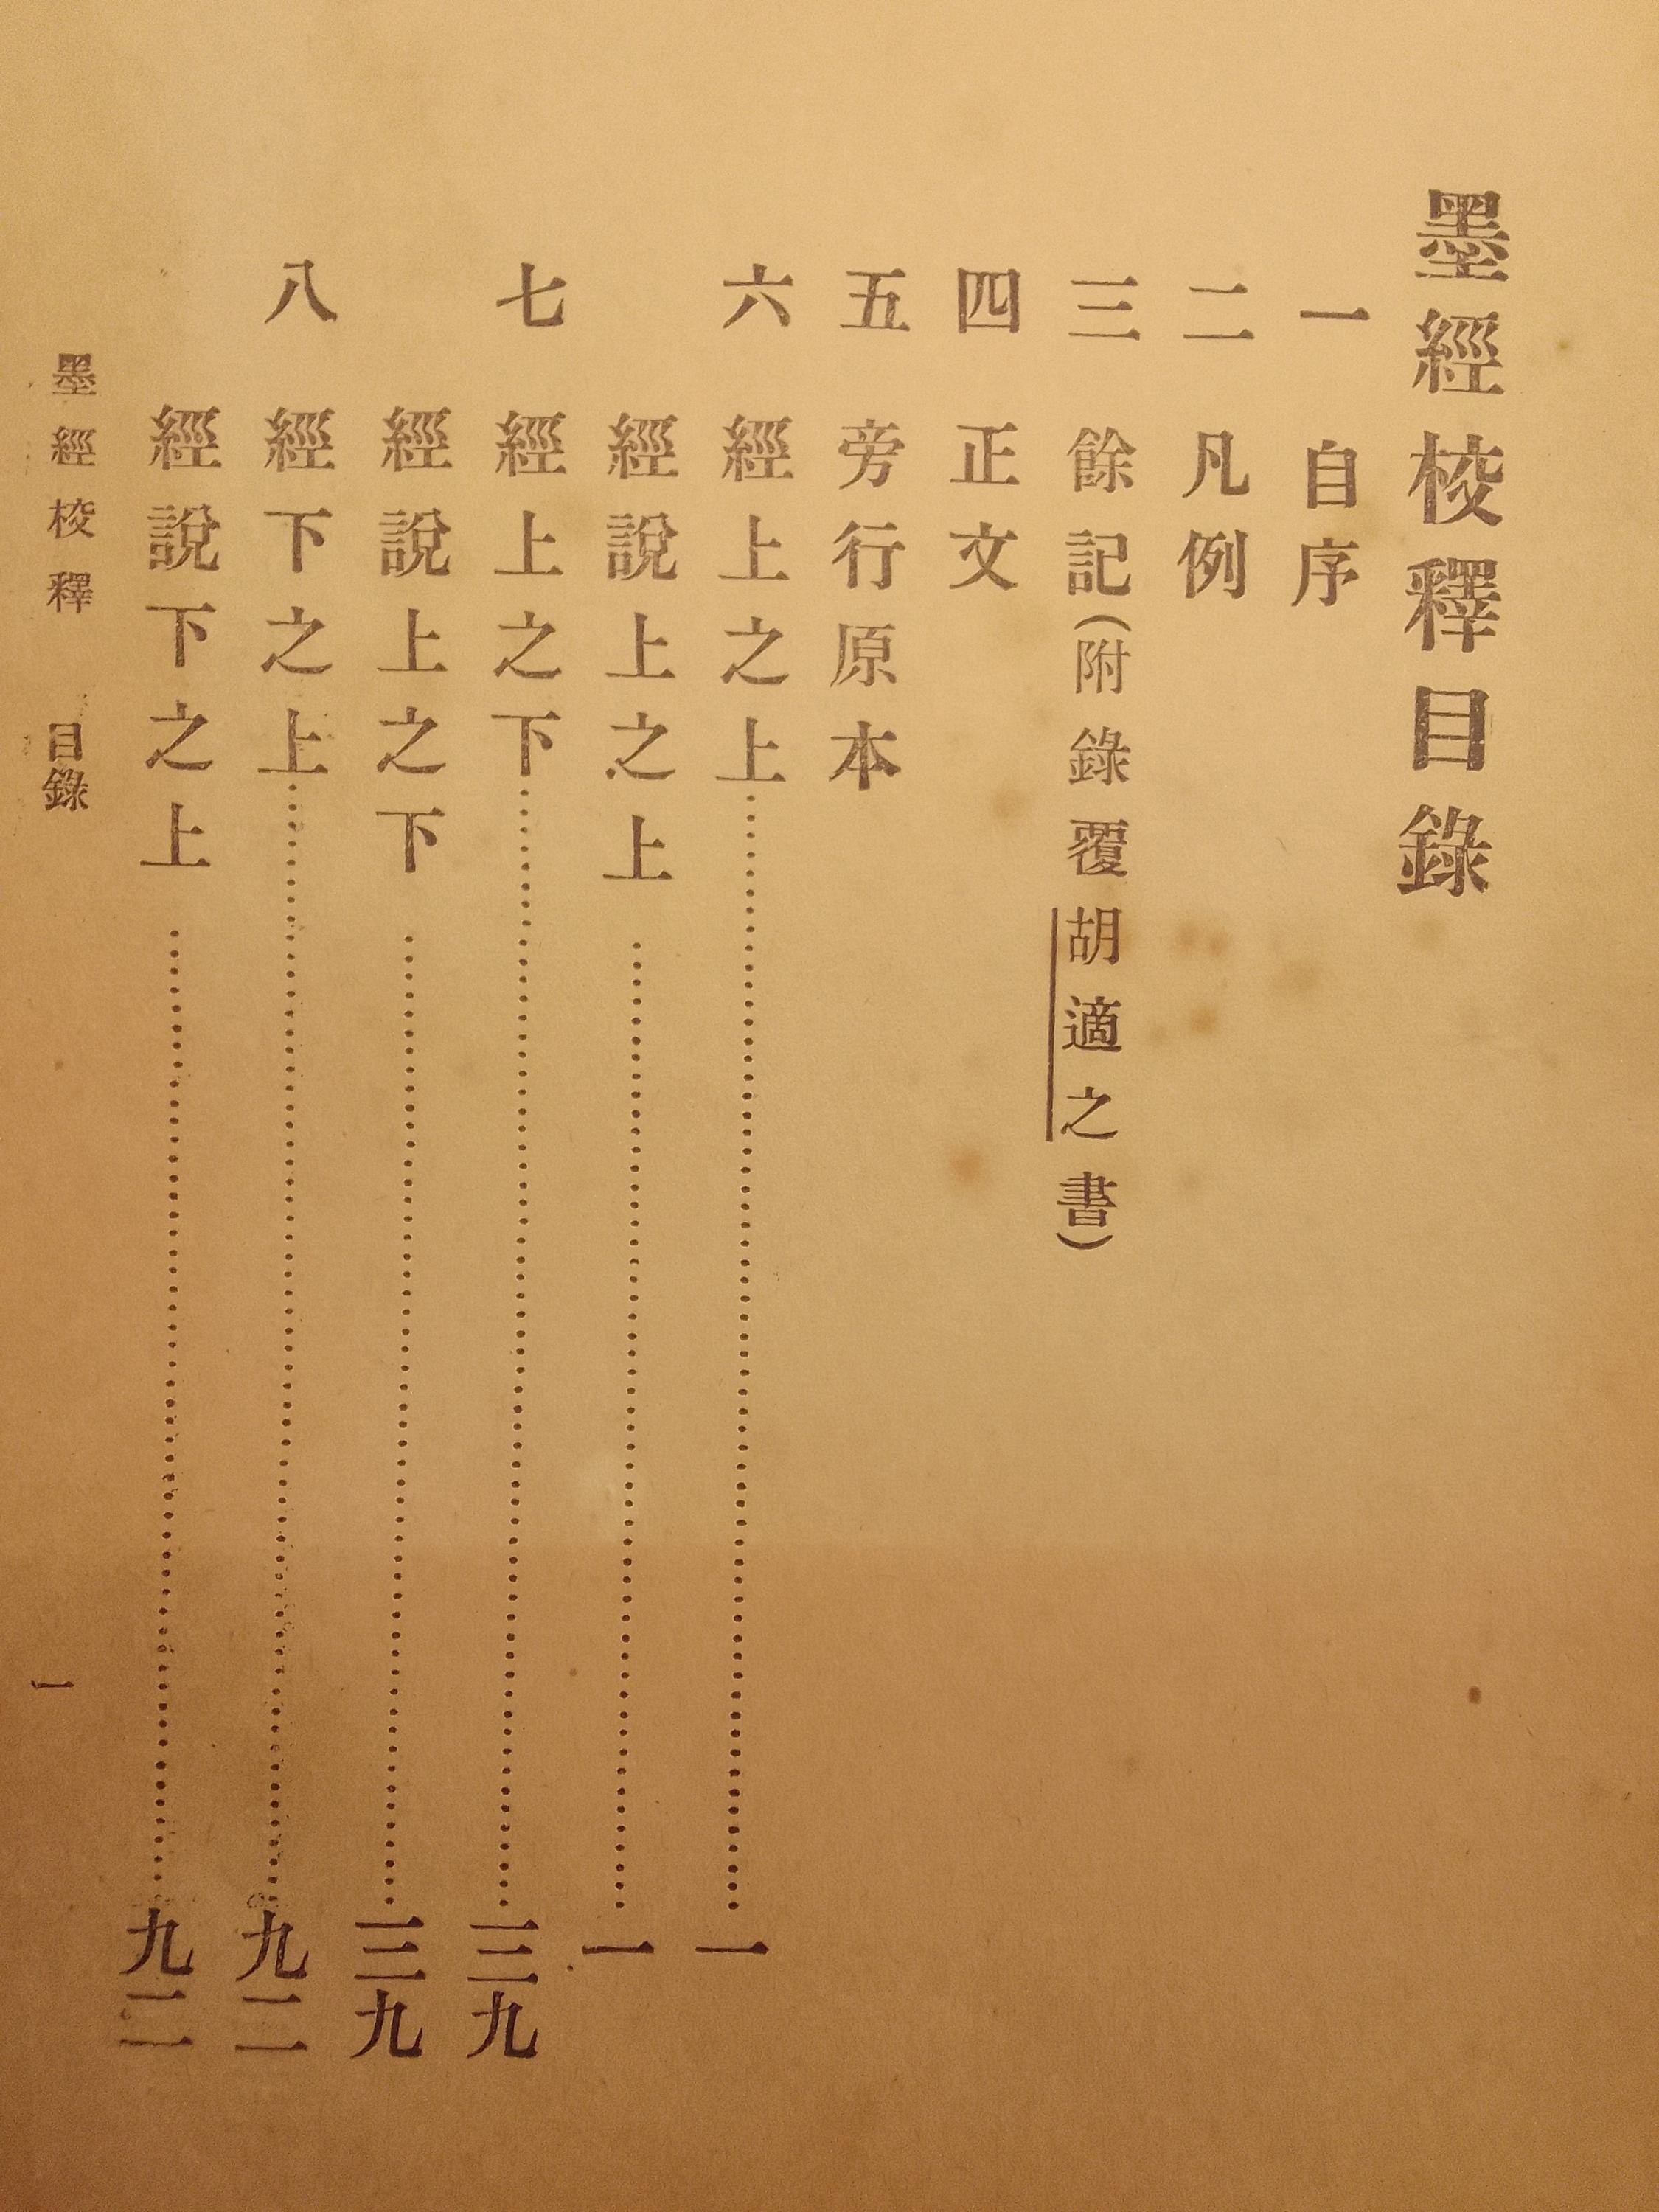 墨經校釋目錄
一 自序
二 凡例
三 餘記(附錄覆胡適之書)
四 正文
五 旁行原本
六 經上之上……一
經說上之上……一
七 經上之下……三九
經說上之下……三九
八 經下之上……九二
經說下之上……九二
墨經校釋 目錄 一